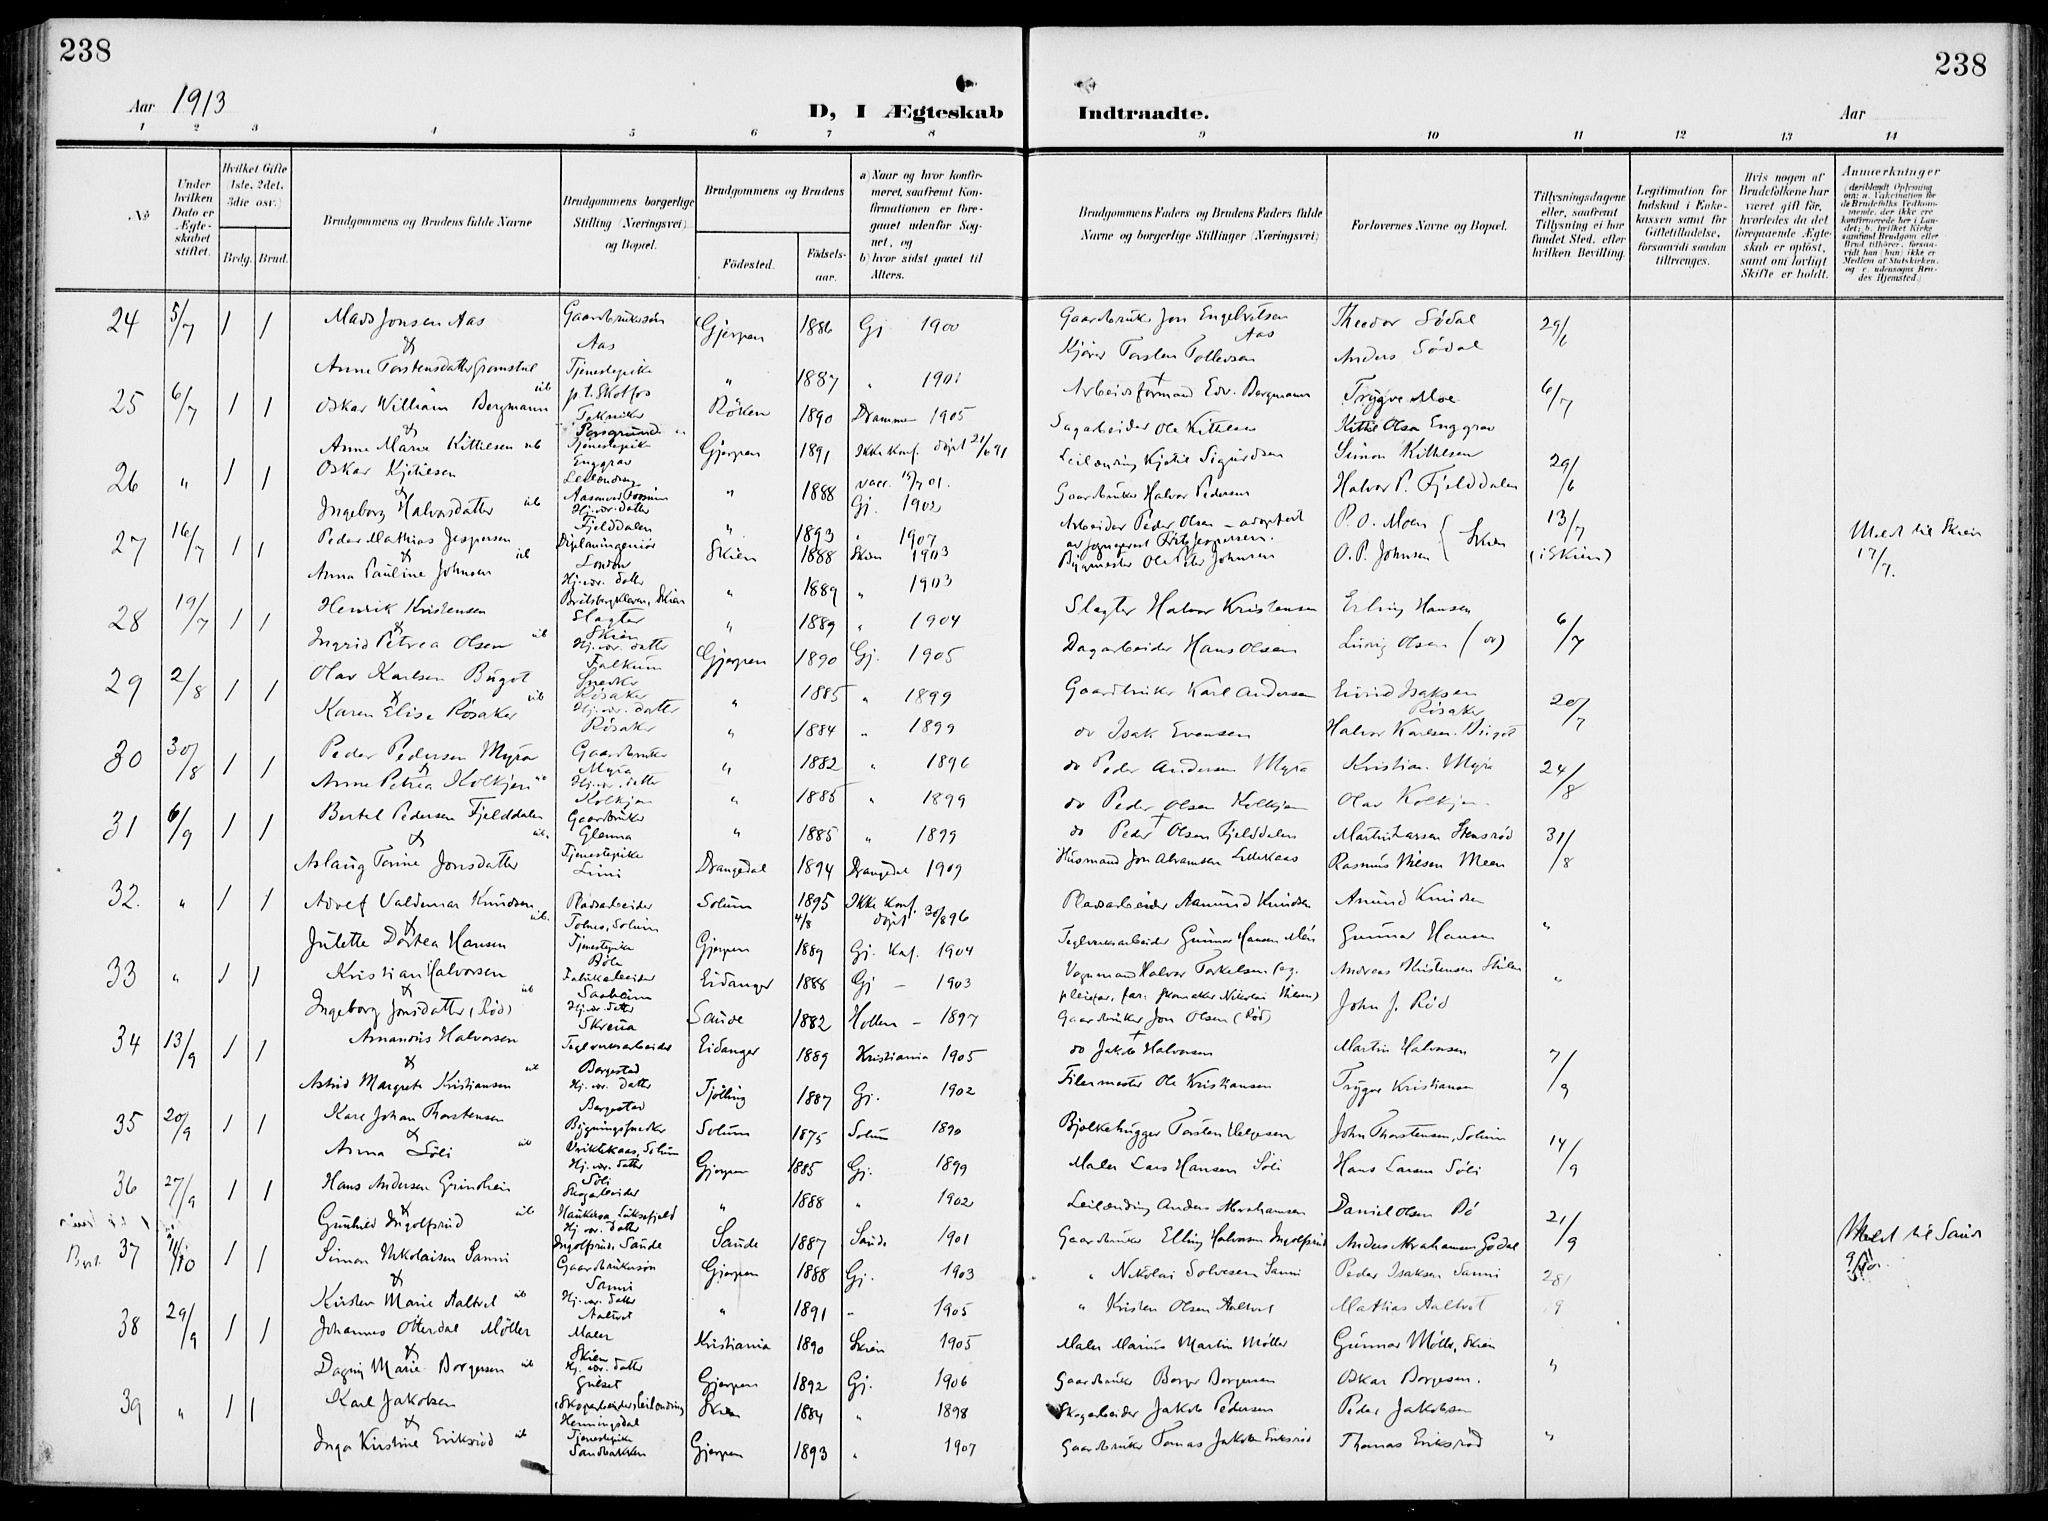 238
238
Aar 1913
D, I Ægteskab Indtraadte.
Aar
1 2 3 4 5 6 7 8 9 10 11 12 13 14
No
Under hvilken Dato er Ægteskabet stiftet.
Hvilket Gifte (1ste, 2det, 3die osv.)
Brdg. Brud.
Brudgommens og Brudens fulde Navne
Brudgommens borgerlige Stilling (Næringsvei) og Bopæl.
Brudgommens og Brudens
Fødested.
Fødselsaar.
a) Naar og hvor konfirmeret, saafremt Konfirmationen er foregaaet udenfor Sognet, og
b) hvor sidst gaaet til Alters.
Brudgommens Faders og Brudens Faders fulde Navne og borgerlige Stillinger (Næringsvei)
Forlovernes Navne og Bopæl.
Tillysningsdagene eller, saafremt Tillysning ei har fundet Sted, efter hvilken Bevilling.
Legitimation for Indskud i Enkekassen samt for Giftetilladelse, forsaavidt saadan tiltrænges.
Hvis nogen af Brudefolkene har været gift før, hvorledes da det foregaaende Ægteskab er opløst, samt om lovligt Skifte er holdt.
Anmærkninger
24 5/7 1 1 Mads Jonsen Aas Gaardbrukersøn Aas Gjerpen 1886 Gj 1900 Gaardbruker Jon Engebretsen Aas Theodor Södal 29/6
& Anne Torstensdatter Gromstul Tjenestepike p.t. Skotfos " 1887 " 1901 Kjører Torsten Tollevsen Anders Södal
25 6/7 1 1 Oskar William Bergmann ub Tekniker Porsgrund Röken 1890 Drammen 1905 Arbeidsformand Edv. Bergmann Trygve Moe 6/7
& Anne Marie Kittilsen ub Tjenestepike Enggrav Gjerpen 1891 Ikke konf. döpt 21/6 91 Sagarbeider Ole Kittilsen Kittil Olsen Enggrav
26 " 1 1 Oskar Kjetilsen Leilending " 1888 vacc. 15/7 01. Gj. 1902 Leilending Kjetil Sigurdsen Simon Kittilsen 29/6
& Ingeborg Halvorsdatter ub Hj.vær. datter Fjelddalen " 1893 " 1907 Gaardbruker Halvor Pedersen Halvor P. Fjelddalen
27 16/7 1 1 Peder Mathias Jespersen Diplomingeniör London Skien 1888 Skien 1903 Arbeider Peder Olsen – adoptert P. O. Moen 13/7 (i Skien)
& Anna Pauline Johnsen ub Hj.vær. datter Skien " 1889 " 1903 Bygmester Ole Peter Johnsen O. P. Johnsen } Skien Meldt til Skien 17/7.
28 19/7 1 1 Henrik Kristensen Slagter Skien " 1889 " 1904 Slagter Halvor Kristensen Erling Hansen 6/7
& Ingrid Petrea Olsen ub Hj.vær. datter Falkum Gjerpen 1890 Gj. 1905 Dagarbeider Hans Olsen Ludvig Olsen
29 2/8 1 1 Olav Karlsen Bugot Snedker Rösaker " 1885 " 1899 Gaardbruker Karl Andersen Eivind Isaksen Rösaker 20/7
& Karen Elise Rösaker ub Hj.vær. datter Rösaker " 1884 " 1899 do Isak Evensen Halvor Karlsen Bugot
30 30/8 1 1 Peder Pedersen Myra Gaardbruker Myra " 1882 " 1896 do Peder Andersen Myra Kristian Myra 24/8
& Anne Petrea Kolkjen ub Hj.vær. datter Kolkjen " 1885 " 1899 do Peder Olsen Kolkjen Olav Kolkjen
31 6/9 1 1 Bertel Pedersen Fjelddalen Gaardbruker Glenna " 1885 " 1899 do Peder Olsen Fjelddalen Martin Larsen Stensröd 31/8
& Aslaug Torine Jonsdatter ub. Tjenestepike Limi Drangedal 1894 Drangedal 1909 Husmand Jon Abramsen Lillekaas Rasmus Nilsen Meen
32. " 1 1 Adolf Valdemar Knudsen Pladsarbeider Tolnes, Solum Solum 1895 4/8 Ikke konf. döpt 30/8 96 Pladsarbeider Aamund Knudsen Amund Knudsen "
& Julette Dortea Hansen ub. Tjenestepike Böle Gjerpen 1889 Gj. kof. 1904 Teglverksarbeider Gunnar Hansen Gunnar Hansen
33 " 1 1 Kristian Halvorsen Fabrikarbeider Eidanger 1888 Gj – 1903 Vognmand Halvor Torkelsen Andreas Kristensen "
& Ingeborg Jonsdatter (Röd) ub Hj.vær. datter Skreua Saude 1882 Hollen – 1897 Gaardbruker Jon Olsen (Röd) John J. Röd
34 13/9 1 1 Amandus Halvorsen Teglverksarbeider Borgestad Eidanger 1889 Kristiania 1905 do Jakob Halvorsen Martin Halvorsen 7/9
& Astrid Margrete Kristiansen ub Hj.vær. datter Borgestad Tjölling 1887 Gj. 1902 Filermester Ole Kristiansen Trygve Kristiansen
35 20/9 1 1 Karl Johan Thorstensen Bygningssnedker Solum Solum 1875 Solum 1890 Bjelkehugger Torsten Helgesen John Thorstensen, Solum 14/9
& Anna Söli ub Hj.vær. datter Söli Gjerpen 1885 Gj. 1899 Maler Lars Hansen Söli Hans Larsen Söli
36 27/9 1 1 Hans Andersen Grindheim Skogarbeider Luksefjeld " 1888 " 1902 Leilending Anders Abrahamsen Daniel Olsen Bö 21/9
& Gunhild Ingolfsrud ub Hj.vær. datter Ingolfsrud, Saude Saude 1887 Saude 1901 Gaardbruker Elling Halvorsen Ingolfsrud Anders Abrahamsen Södal Meldt til Saude 9/10.
37 11/10 1 1 Simon Nikolaisen Sanni Gaardbrukersön Sanni Gjerpen 1888 Gj. 1903 " Nikolai Solvesen Sanni Peder Isaksen Sanni 28/9
& Kirsten Marie Aaltvet ub Hj.vær. datter Aaltvet " 1891 " 1905 " Kristen Olsen Aaltvet Mathias Aaltvet
38 29/9 1 1 Johannes Otterdal Möller Maler Skien Kristiania 1890 Skien 1905 Maler Marius Martin Möller Gunnar Möller, Skien "
& Dagny Marie Borgersen ub Hj.vær. datter Gulset Gjerpen 1892 Gj. 1906 Gaardbruker Borger Borgersen Oskar Borgesen.
39 " 1 1 Karl Jakobsen (Skogarbeider) Leilending Henningsdal Skien 1884 " 1898 Skogarbeider Jakob Pedersen Peder Jakobsen "
& Inga Kirstine Eriksröd ub Tjenestepike Sandbakken Gjerpen 1893 " 1907 Gaardbruker Tomas Jakobsen Eriksröd Thomas Eriksröd